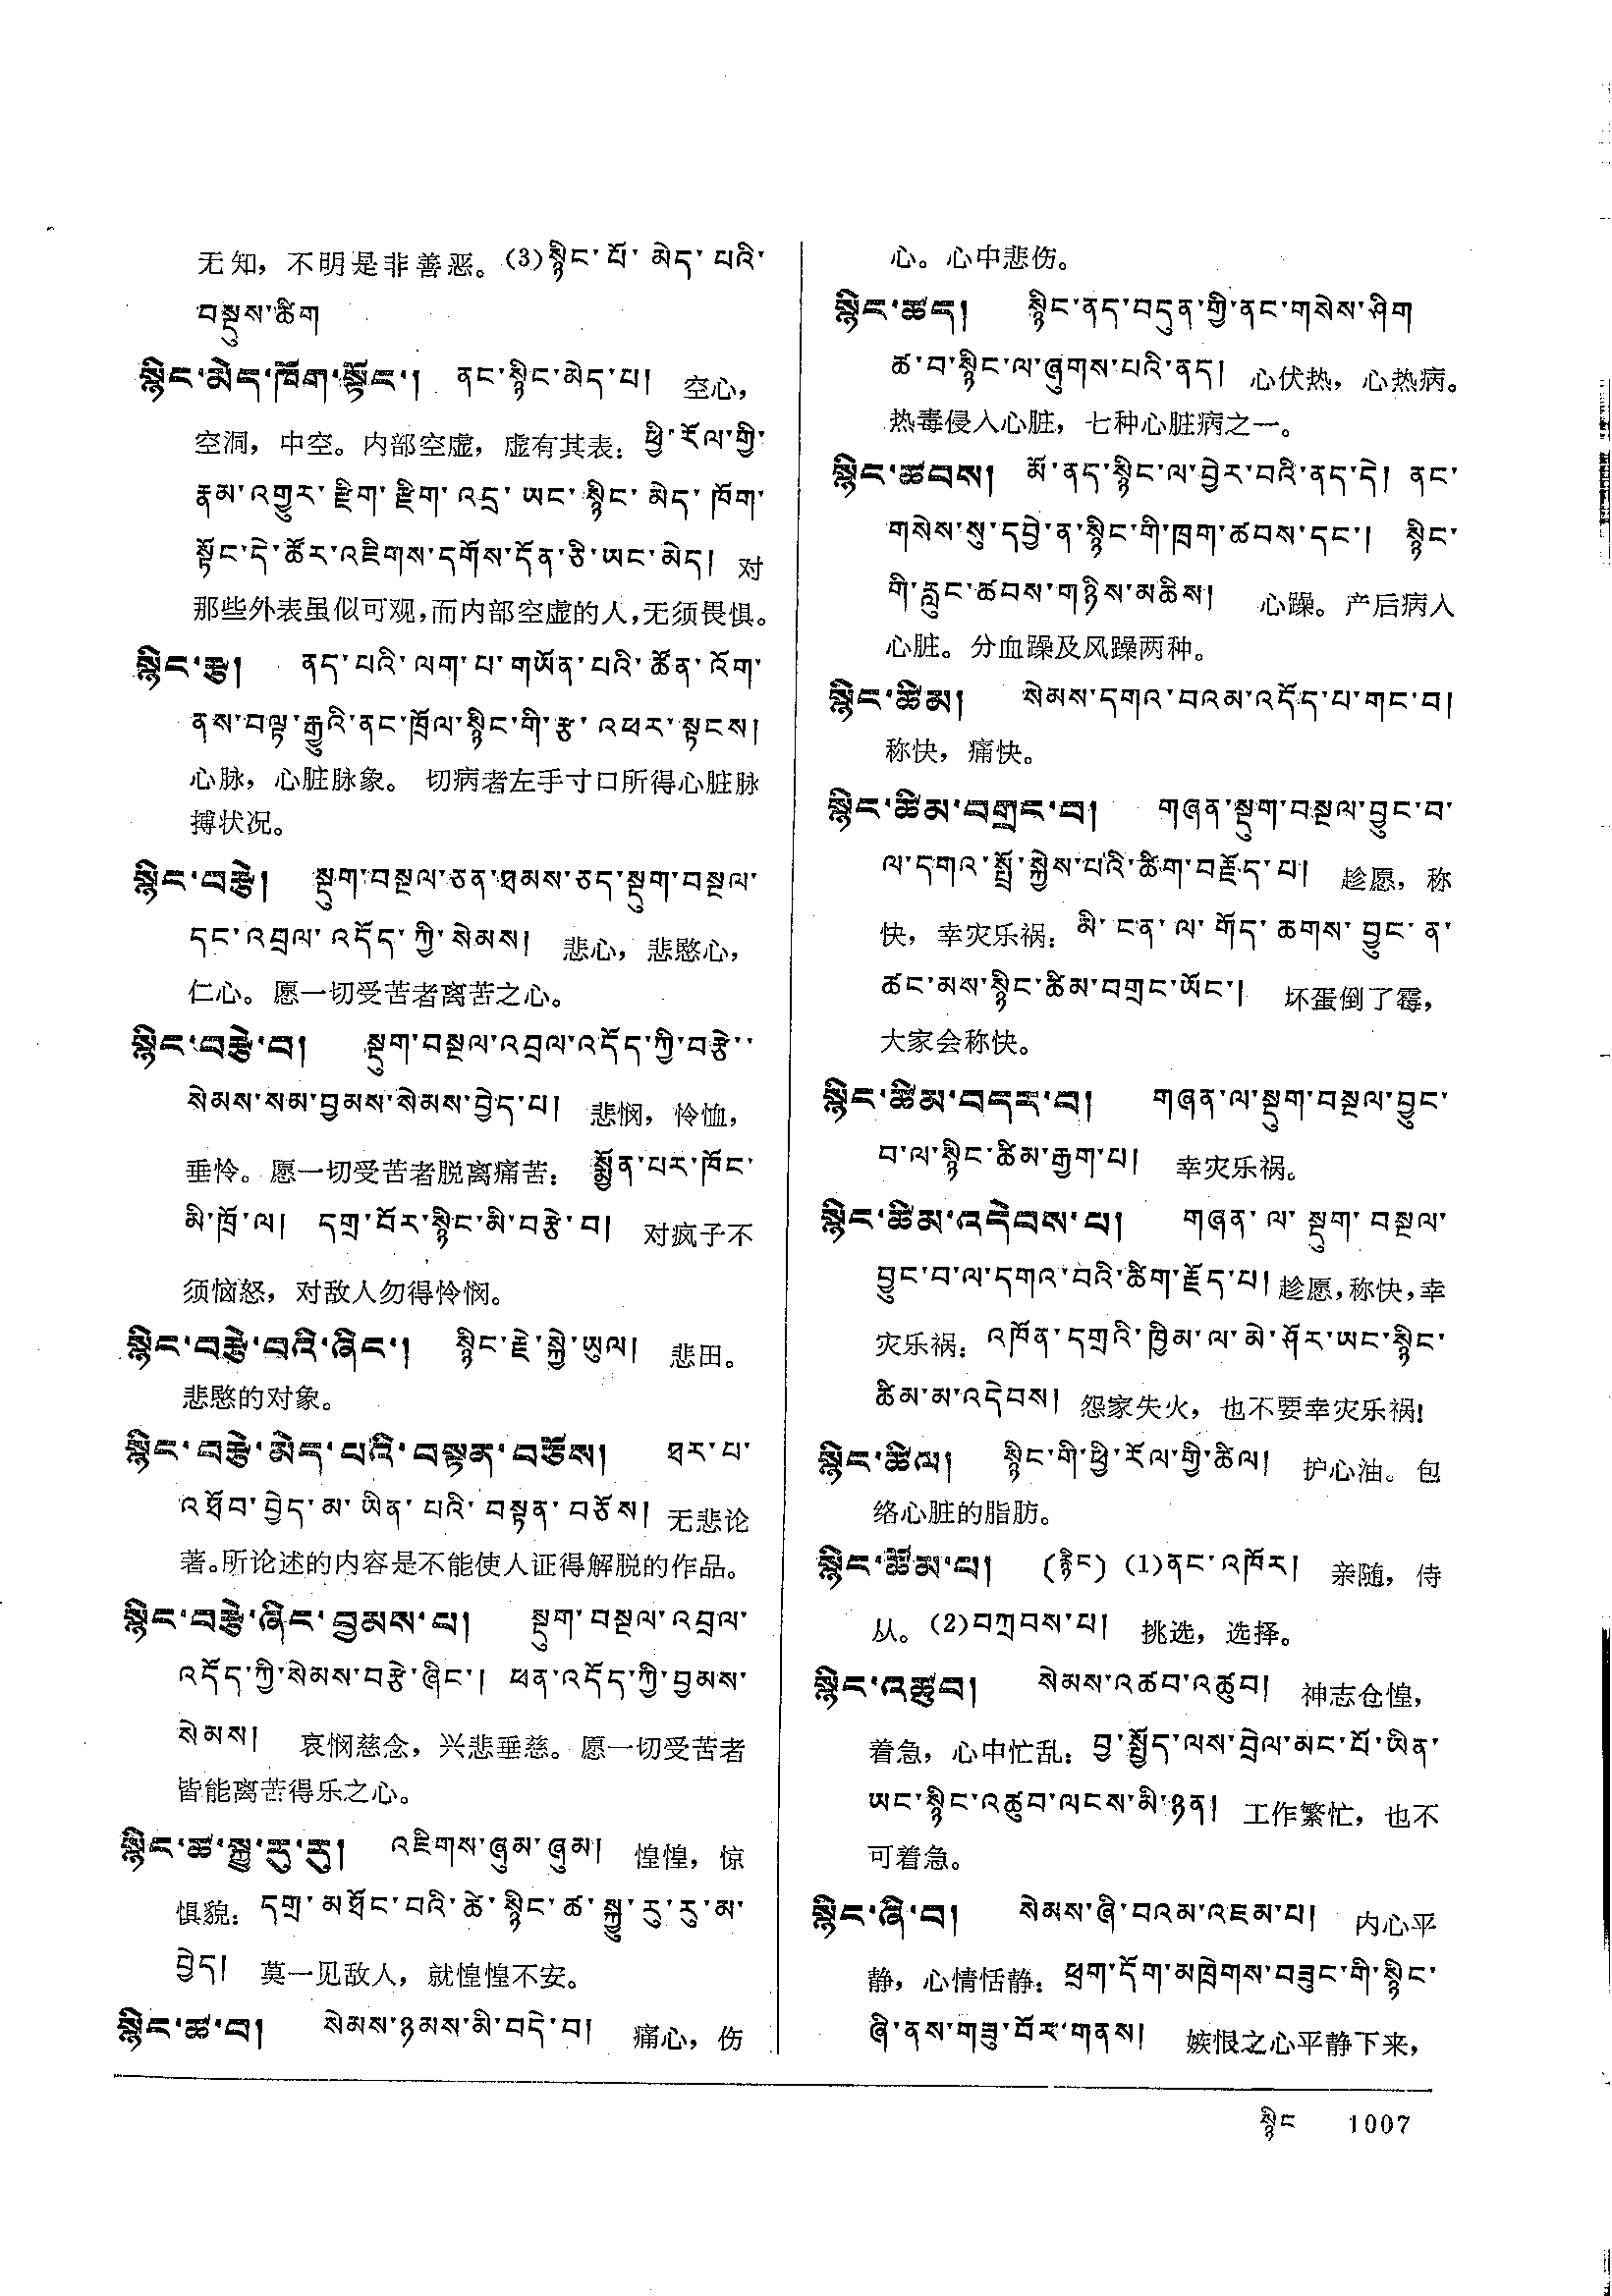 无知，不明是非善恶。(3)སྙིང་པོ་མེད་པའི་
བསྡུས་ཚིག
སྙིང་མེད་ཁོག་སྟོང་། ནང་སྙིང་མེད་པ། 空心，
空洞，中空。内部空虚，虚有其表：ཕྱི་རོལ་གྱི་
རྣམ་འགྱུར་རྫིག་རྫིག་འདྲ་ཡང་སྙིང་མེད་ཁོག་
སྟོང་དེ་ཚོར་འཇིགས་དགོས་དོན་ཅི་ཡང་མེད། 对
那些外表虽似可观，而内部空虚的人，无须畏惧。
སྙིང་རྩ། ནད་པའི་ལག་པ་གཡོན་པའི་ཚོན་འོག་
ནས་བལྟ་རྒྱུའི་ནང་ཁྲོལ་སྙིང་གི་རྩ་འཕར་སྟངས།
心脉，心脏脉象。 切病者左手寸口所得心脏脉
搏状况。
སྙིང་བརྩེ། སྡུག་བསྔལ་ཅན་ཐམས་ཅད་སྡུག་བསྔལ་
དང་འབྲལ་འདོད་ཀྱི་སེམས། 悲心，悲愍心，
仁心。愿一切受苦者离苦之心。
སྙིང་བརྩེ་བ། སྡུག་བསྔལ་འབྲལ་འདོད་ཀྱི་བརྩེ་་
སེམས་སམ་བྱམས་སེམས་བྱེད་པ། 悲悯，怜恤，
垂怜。愿一切受苦者脱离痛苦：སྨྱོན་པར་ཁོང་
མི་ཁྲོ་ལ། དགྲ་བོར་སྙིང་མི་བརྩེ་བ། 对疯子不
须恼怒，对敌人勿得怜悯。
སྙིང་བརྩེ་བའི་ཞིང་། སྙིང་རྗེ་སྐྱེ་ཡུལ། 悲田。
悲愍的对象。
སྙིང་བརྩེ་མེད་པའི་བསྟན་བཅོས། ཐར་པ་
འཐོབ་བྱེད་མ་ཡིན་པའི་བསྟན་བཅོས། 无悲论
著。所论述的内容是不能使人证得解脱的作品。
སྙིང་བརྩེ་ཞིང་བྱམས་པ། སྡུག་བསྔལ་འབྲལ་
འདོད་ཀྱི་སེམས་བརྩེ་ཞིང་། ཕན་འདོད་ཀྱི་བྱམས་
སེམས། 哀悯慈念，兴悲垂慈。愿一切受苦者
皆能离苦得乐之心。
སྙིང་ཚ་སྐྱུ་རུ་རུ། འཇིགས་ཞུམ་ཞུམ། 惶惶，惊
惧貌：དགྲ་མཐོང་བའི་ཚེ་སྙིང་ཚ་སྐྱུ་རུ་རུ་མ་
བྱེད། 莫一见敌人，就惶惶不安。
སྙིང་ཚ་བ། སེམས་ཉམས་མི་བདེ་བ། 痛心，伤
心。心中悲伤。
སྙིང་ཚད། སྙིང་ནད་བདུན་གྱི་ནང་གསེས་ཤིག
ཚ་བ་སྙིང་ལ་ཞུགས་པའི་ནད། 心伏热，心热病。
热毒侵入心脏，七种心脏病之一。
སྙིང་ཚབས། མོ་ནད་སྙིང་ལ་བྱེར་བའི་ནད་དེ། ནང་
གསེས་སུ་དབྱེ་ན་སྙིང་གི་ཁྲག་ཚབས་དང་། སྙིང་
གི་རླུང་ཚབས་གཉིས་མཆིས། 心躁。产后病入
心脏。分血躁及风躁两种。
སྙིང་ཚིམ། སེམས་དགའ་བའམ་འདོད་པ་གང་བ།
称快，痛快。
སྙིང་ཚིམ་བགྲང་བ། གཞན་སྡུག་བསྔལ་བྱུང་བ་
ལ་དགའ་སྤྲོ་སྐྱེས་པའི་ཚིག་བརྗོད་པ། 趁愿，称
快，幸灾乐祸：མི་ངན་ལ་གོད་ཆགས་བྱུང་ན་
ཚང་མས་སྙིང་ཚིམ་བགྲང་ཡོང་། 坏蛋倒了霉，
大家会称快。
སྙིང་ཚིམ་བདར་བ། གཞན་ལ་སྡུག་བསྔལ་བྱུང་
བ་ལ་སྙིང་ཚིམ་རྒྱག་པ། 幸灾乐祸。
སྙིང་ཚིམ་འདེབས་པ། གཞན་ལ་སྡུག་བསྔལ་
བྱུང་བ་ལ་དགའ་བའི་ཚིག་རྗོད་པ། 趁愿，称快，幸
灾乐祸：འཁོན་དགྲའི་ཁྱིམ་ལ་མེ་ཤོར་ཡང་སྙིང་
ཚིམ་མ་འདེབས། 怨家失火，也不要幸灾乐祸！
སྙིང་ཚིལ། སྙིང་གི་ཕྱི་རོལ་གྱི་ཚིལ། 护心油。包
络心脏的脂肪。
སྙིང་ཚོམ་པ། (རྙིང) (1)ནང་འཁོར། 亲随，侍
从。(2)བཀྲབས་པ། 挑选，选择。
སྙིང་འཚུབ། སེམས་འཚབ་འཚུབ། 神志仓惶，
着急，心中忙乱：བྱ་སྤྱོད་ལས་བྲེལ་མང་པོ་ཡིན་
ཡང་སྙིང་འཚུབ་ལངས་མི་ཉན། 工作繁忙，也不
可着急。
སྙིང་ཞི་བ། སེམས་ཞི་བའམ་འཇམ་པ། 内心平
静，心情恬静：ཕྲག་དོག་མཁྲེགས་བཟུང་གི་སྙིང་
ཞི་ནས་གཟུ་བོར་གནས། 嫉恨之心平静下来，
སྙིང 1007